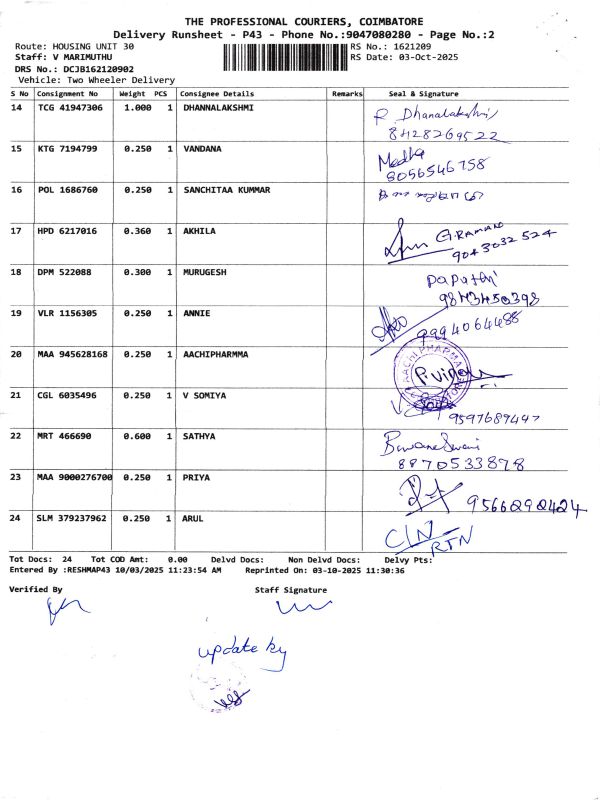 THE PROFESSIONAL COURIERS, COIMBATORE
Delivery Runsheet - P43 - Phone No.:9047080280 - Page No.:2
Route: HOUSING UNIT 30
RS No.: 1621209
Staff: V MARIMUTHU
RS Date: 03-Oct-2025
DRS No.: DCJB162120902
Vehicle: Two Wheeler Delivery
S No Consignment No Weight PCS Consignee Details Remarks Seal & Signature
14 TCG 41947306 1.000 1 DHANNALAKSHMI R. Dhanalakshmi
8428269522
15 KTG 7194799 0.250 1 VANDANA Medha
8056546758
16 POL 1686760 0.250 1 SANCHITAA KUMMAR
17 HPD 6217016 0.360 1 AKHILA G.RAMAN
9043032524
18 DPM 522088 0.300 1 MURUGESH papathi
9843450398
19 VLR 1156305 0.250 1 ANNIE 9994064488
20 MAA 945628168 0.250 1 AACHIPHARMMA
AACHI PHARMA
21 CGL 6035496 0.250 1 V SOMIYA
9597689447
22 MRT 466690 0.600 1 SATHYA
8870533878
23 MAA 9000276700 0.250 1 PRIYA 9566292424
24 SLM 379237962 0.250 1 ARUL C/N
RTN
Tot Docs: 24 Tot COD Amt: 0.00 Delvd Docs: Non Delvd Docs: Delvy Pts:
Entered By :RESHMAP43 10/03/2025 11:23:54 AM Reprinted On: 03-10-2025 11:30:36
Verified By Staff Signature
update by